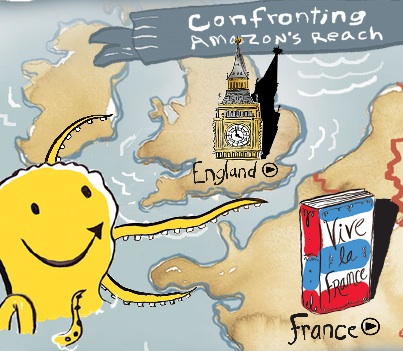 Confronting
AMAZON'S REACH
England
Vive
la
France
france